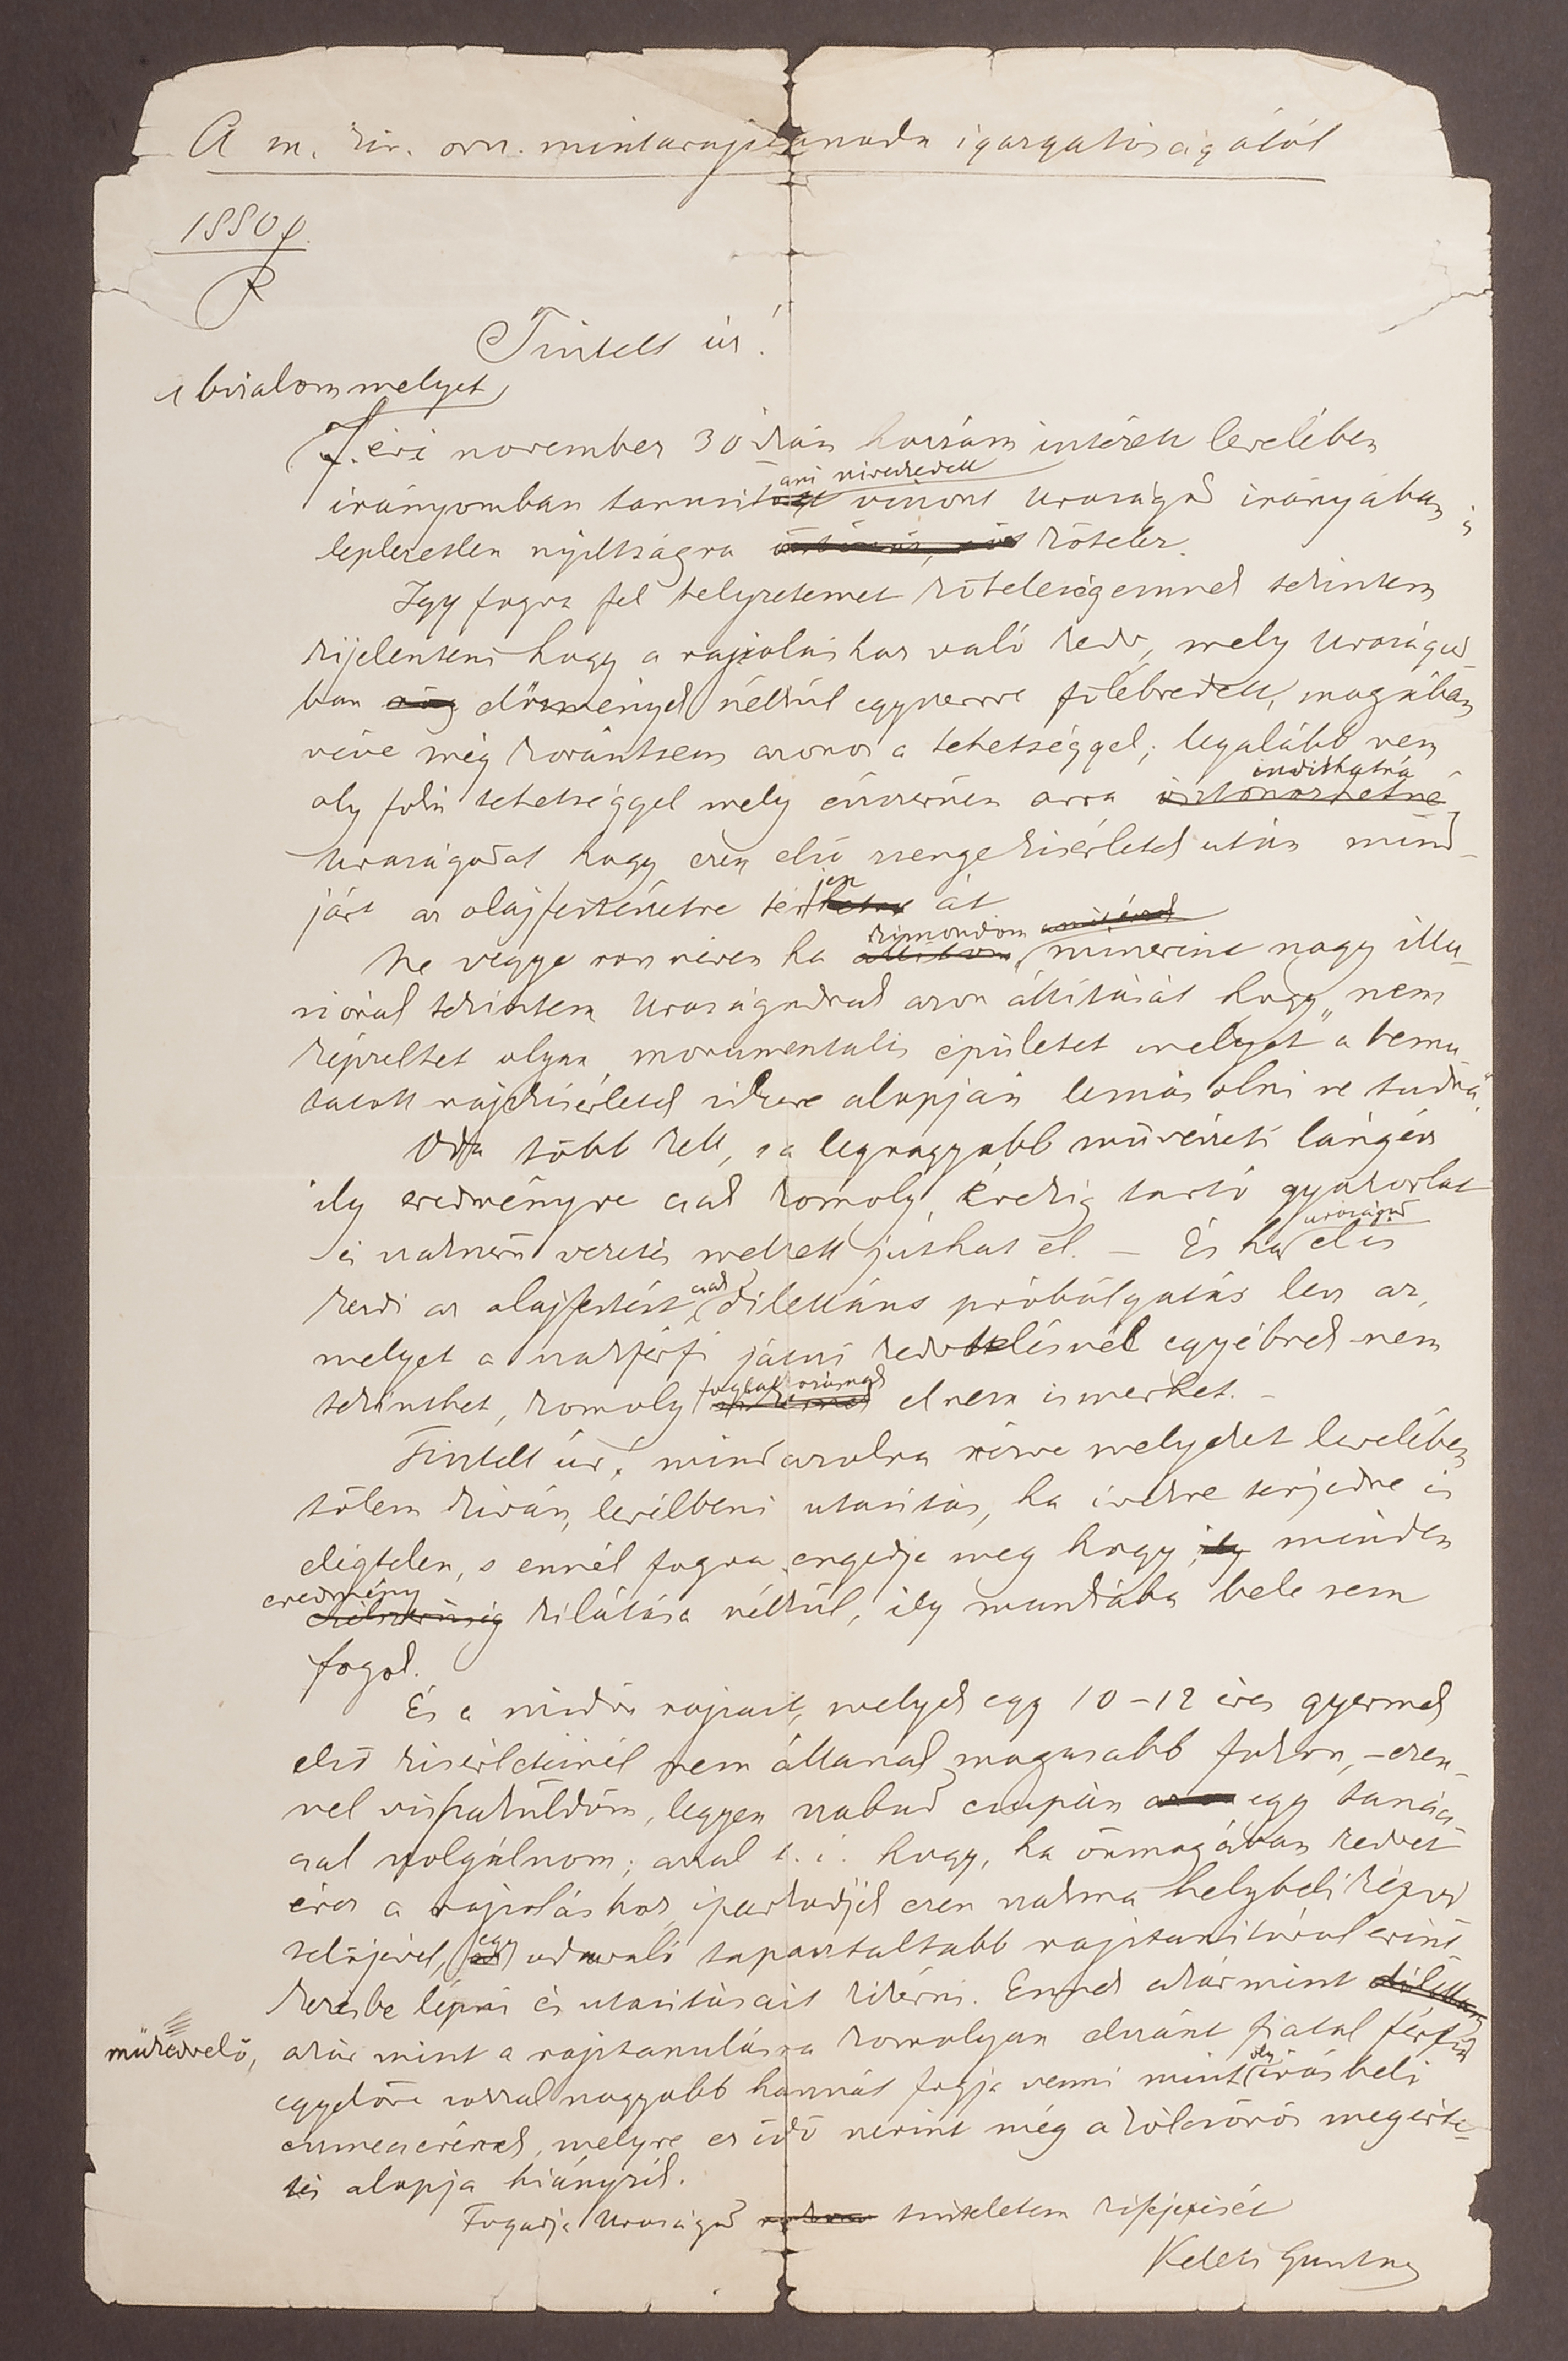 A m. kir. orsz. mintarajztanoda igazgatóságától
1880
Tisztelt úr!
bizalom melyet
F. évi november 30ikán hozzám intézett levelében
irányomban tanusitani sziveskedett viszont Uraságod irányában is
leplezetlen nyiltságra kötelez.
Igy fogva fel helyzetemet kötelességemnek tekintem
kijelenteni hogy a rajzoláshoz való kedv, mely Uraságod-
ban előzmények nélkül egyszerre fölébredett, magában
véve még korántsem azonos a tehetséggel; legalább nem
oly fokú tehetséggel mely észszerüen arra indithatná
Uraságodat hogy ezen első zsenge kisérletek után mind-
járt az olajfestészetre térjen át
Ne vegye rossz néven ha kimondom, miszerint nagy illu-
ziónak tekintem Uraságodnak azon állitását hogy „nem
képzelhet olyan monumentalis épületet melyet" a bemu-
tatott rajzkisérletek sikere alapján lemásolni ne tudna".
Oda több kell, s a legnagyobb művészeti lángész
ily eredményre csak komoly, évekig tartó gyakorlat
és szakszerű vezetés mellett juthat el. — És ha uraságod el is
kezdi az olajfestést, csak dilettáns próbálgatás lesz az,
melyet a szakférfi játszi kedvtelésnél egyébnek nem
tekinthet, komoly foglalkozásnak el nem ismerhet. –
Tisztelt úr! mindazokra nézve melyeket levelében
tőlem kiván, levélbeni utasitás, ha ivekre terjedne is
elégtelen, s ennél fogva engedje meg hogy minden
eredmény kilátása nélkül, ily munkába bele sem
fogok.
És a midőn rajzait, melyek egy 10–12 éves gyermek
első kisérleteinél nem állanak magasabb fokon, – ezen-
nel visszaküldöm, legyen szabad csupán egy tanács-
csal szolgálnom; azzal t. i. hogy, ha önmagában kedvet
érez a rajzoláshoz, iparkodjék ezen szakma helybeli képvi-
selőjével, egy odavaló tapasztaltabb rajztanitóval érint-
kezésbe lépni és utasitásait kikérni. Ennek akármint
műkedvelő, akár mint a rajztanulásra komolyan elszánt fiatal férfiú
egyelőre sokkal nagyobb hasznát fogja venni mint oly irásbeli
eszmecserének, melyre ez idő szerint még a kölcsönös megérte-
tés alapja hiányzik.
Fogadja Uraságod tiszteletem kifejezését
Keleti Gusztáv